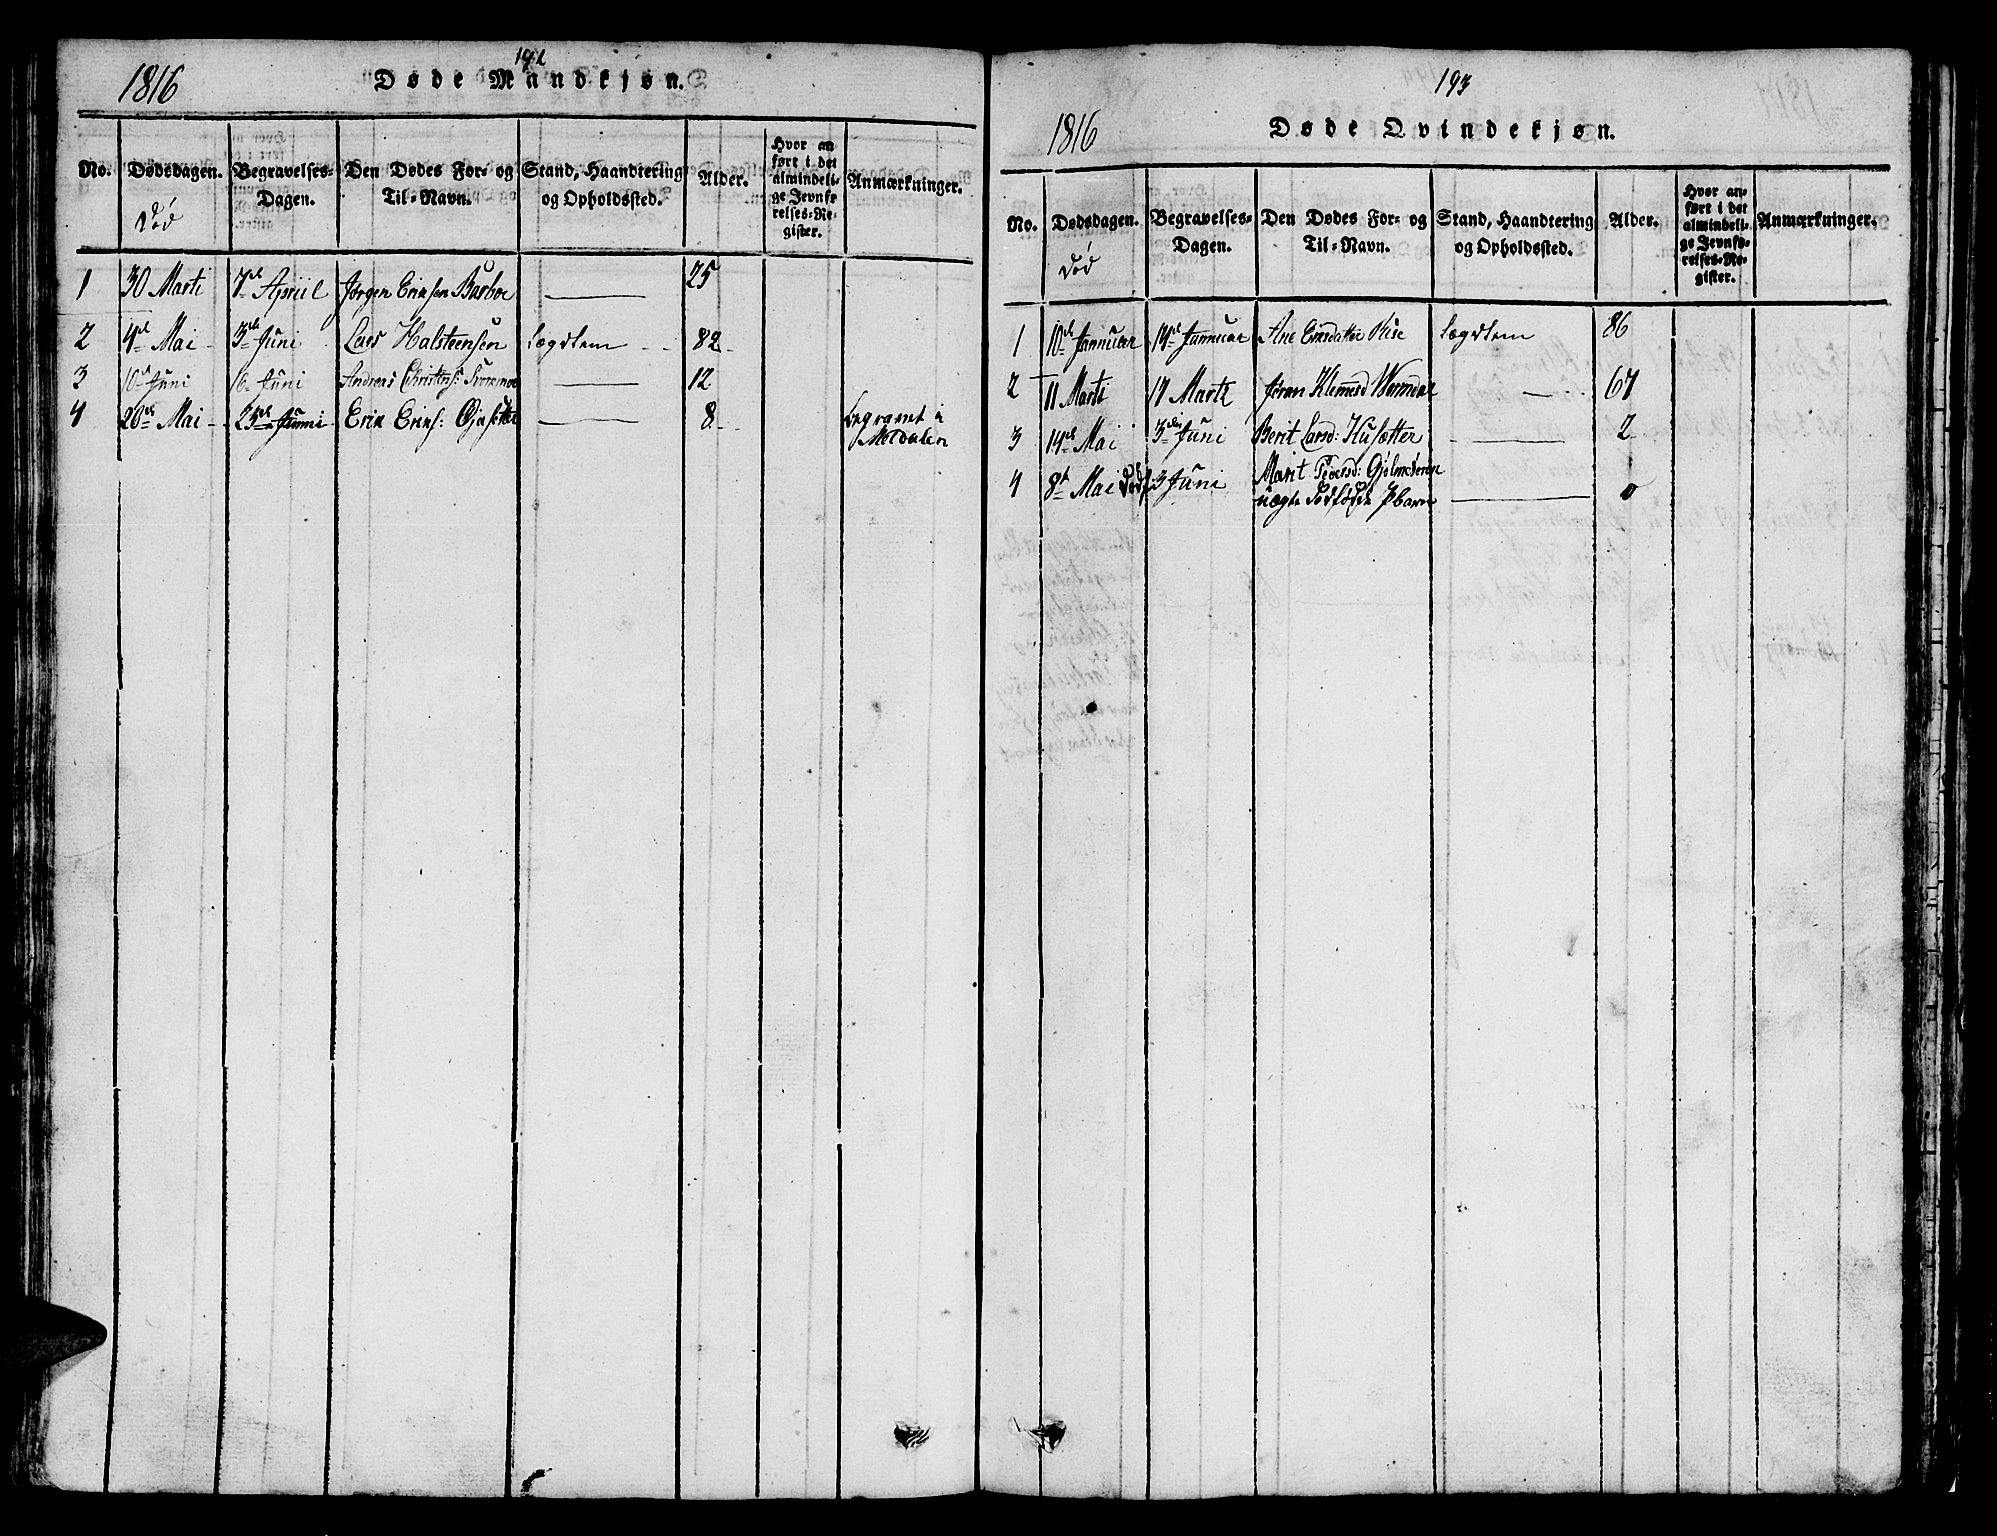 192
1816 Døde Mandkjøn.
No. Dødsdagen. Begravelses-Dagen. Den Dødes For- og Til-Navn. Stand, Haandtering og Opholdssted. Alder. Hvor anført i det almindelige Jevnførelses-Register. Anmærkninger.
Død
1 30 Marti 7de Apriil Jørgen Erichsen Barboe — 25
2 4de Mai 3de Juni Lars Halsteensen Lægdlem 82
3 10de Juni 16 Juni Andreas Christens: — 12
4 20de Mai 23de Junni Erik Eriks: — 8 begravet i
Meldalen
193
1816 Døde Qvindekjøn.
No. Dødsdagen. Begravelses-Dagen. Den Dødes For- og Til-Navn. Stand, Haandtering og Opholdssted. Alder. Hvor anført i det almindelige Jevnførelses-Register. Anmærkninger.
Død
1 10de Jannuar 14de Jannuar Ane Ericsdatter Rise Lægdlem 86
2 11 Marti 17 Marti Jøran Klemesd — 67
3 14de Mai 3die Juni Berit Larsd: Husætter — 2
4 8de Mai 3 Juni Marit
uægte Dødfødde Pbarn — 0